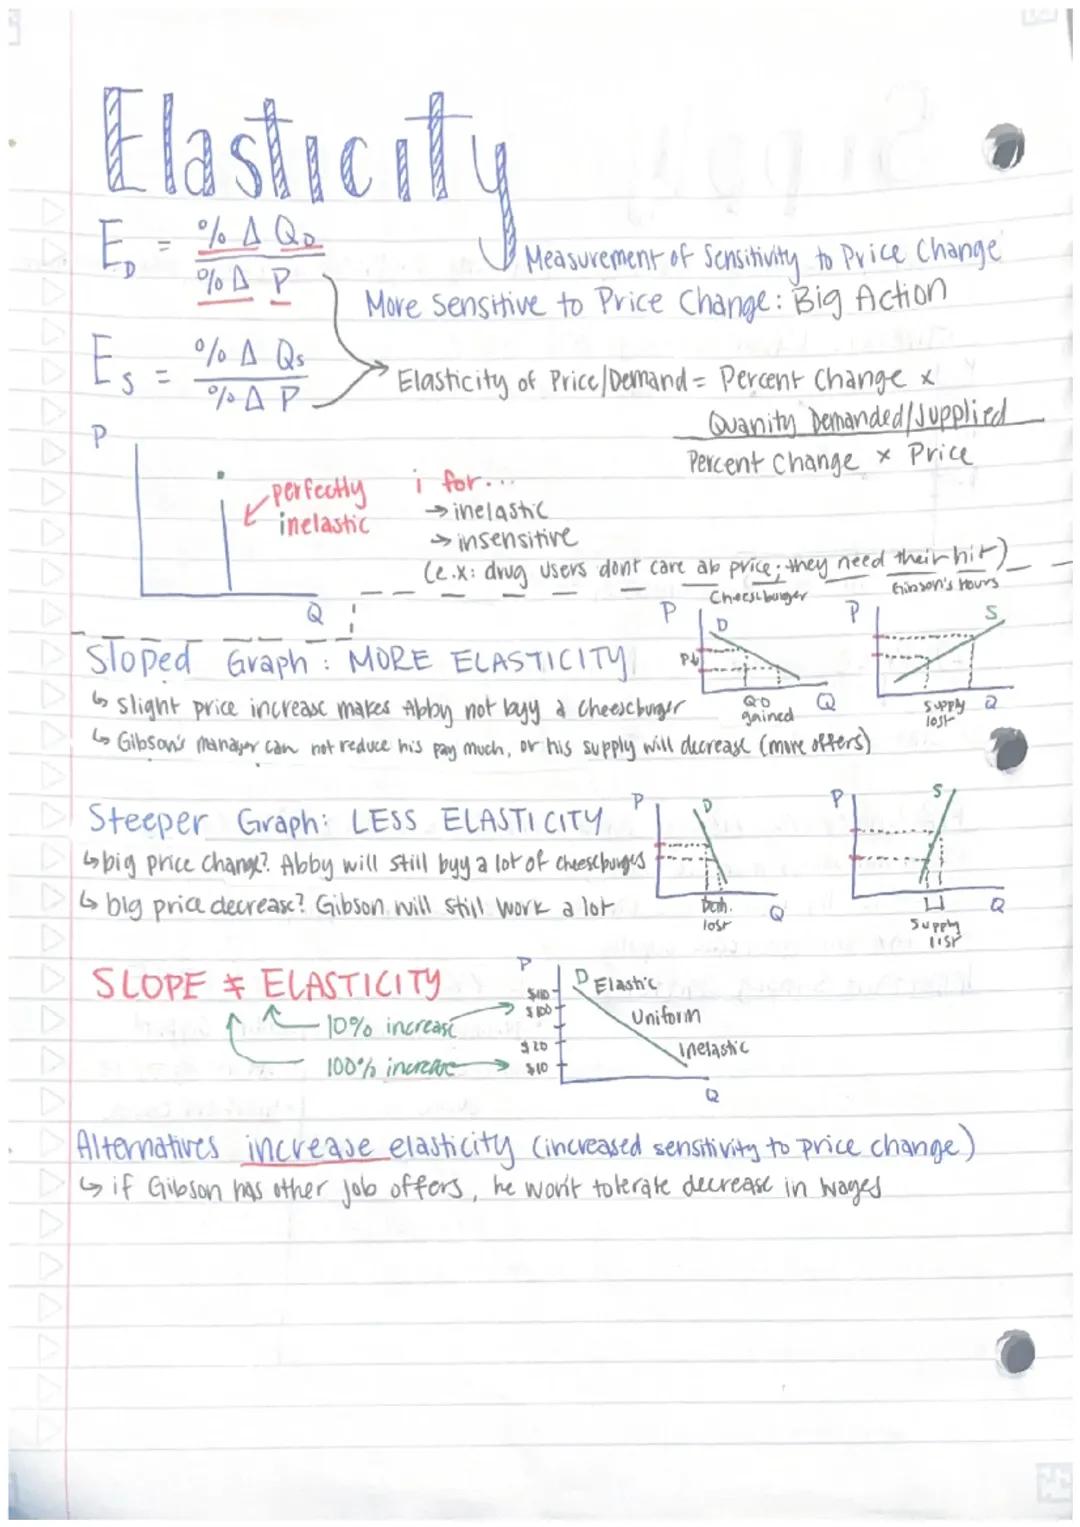 Elasticity
E_D = % Δ Q_D / % Δ P
Measurement of Sensitivity to Price Change
More Sensitive to Price Change: Big Action
E_S = % Δ Q_S / % Δ P
Elasticity of Price/Demand = Percent Change ×
Quanity Demanded/Supplied
Percent Change × Price
P
perfectly
inelastic
Q
i for...
→ inelastic
→ insensitive
(e.x: drug users dont care ab price; they need their hit)
Cheeseburger
P
D
P↓
QD
gained
Q
Gibson's Hours
P
S
supply
lost
Q
Sloped Graph: MORE ELASTICITY
↳ Slight price increase makes Abby not buyy a cheeseburger
↳ Gibson's manager can not reduce his pay much, or his supply will decrease (more offers)
Steeper Graph: LESS ELASTICITY
↳ big price change? Abby will still buyy a lot of cheeseburges
↳ big price decrease? Gibson will still work a lot
P
D
Dem.
lost
Q
P
S
Supply
list
Q
SLOPE ≠ ELASTICITY
10% increase
100% increase
P
$110
$100
$20
$10
D Elastic
Uniform
Inelastic
Q
Alternatives increase elasticity (increased sensitivity to price change)
↳ if Gibson has other job offers, he won't tolerate decrease in wages